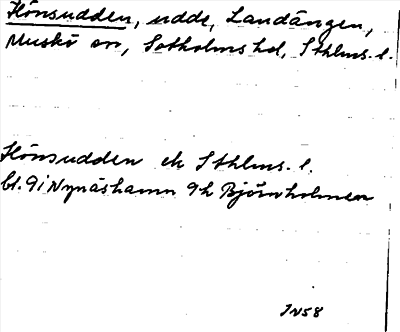 Hönsudden, udde, Landängen,
Muskö sn, Sotholms hd, Sthlms. l.
Hönsudden ek Sthlms. l.
bl. 9i Nynäshamn 9h Björnholmen
JN58